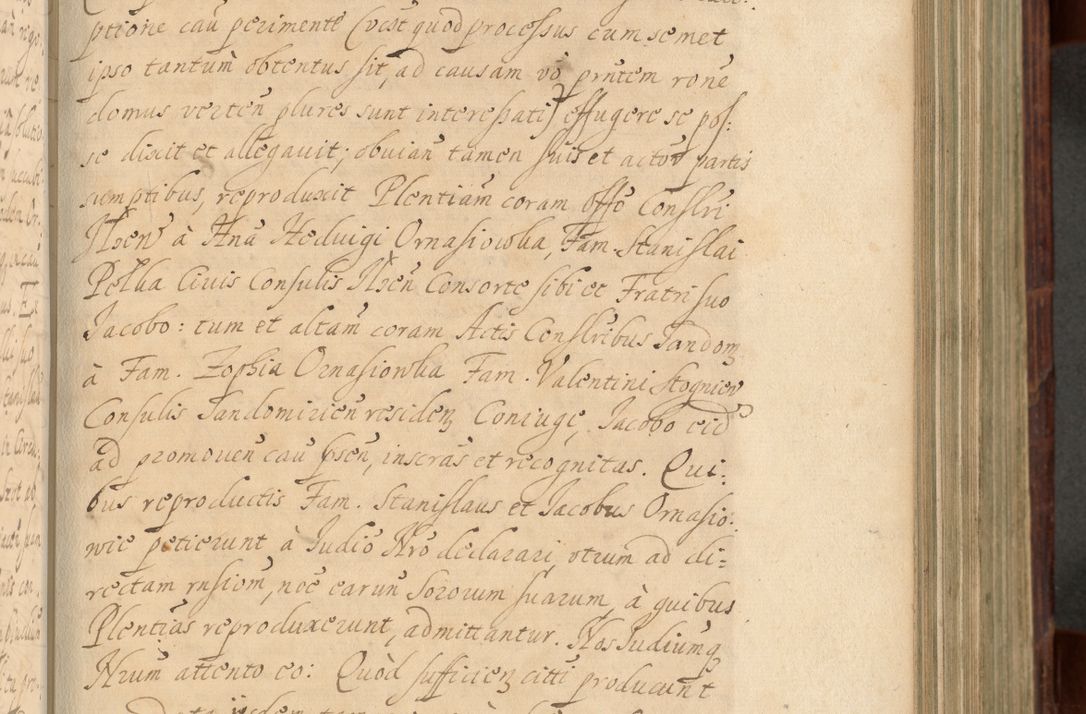 ptione cau perimente (vest quod processus cum semet
ipso tantum obtentus sit, ad causam vo prntem rone
domus verten plures sunt interessati) effugere se pos:
se dixit et allegavit; obvian tamen suis et actor partis
sumptibus, reproduxit Plentiam coram offo Conslri
Ilzen à Ana Heduigi Ornasiowka, Fam. Stanislai
Pelka Civis Consulis Ilzen Consorte sibi et Fratri suo
Jacobo: tum et altam coram Actis Conslribus Sandomz
à Fam. Zophia Ornasionka Fam. Valentini Stogniew
Consulis Sandomirien residenz Coniuge, Jacobo eid
ad promouen cau psen, inseras et recognitas. Qui:
bus reproductis Fam. Stanislaus et Jacobus Ornasio:
wie petierunt à Judio Nro declarari, utrum ad di=
rectam rnsiom, nec earun Sororum suarum, à quibus
Plentias reproduxerunt, admittantur. Nos Judiumq
Nrum attento eo: Quòd sufficienz citti producunt